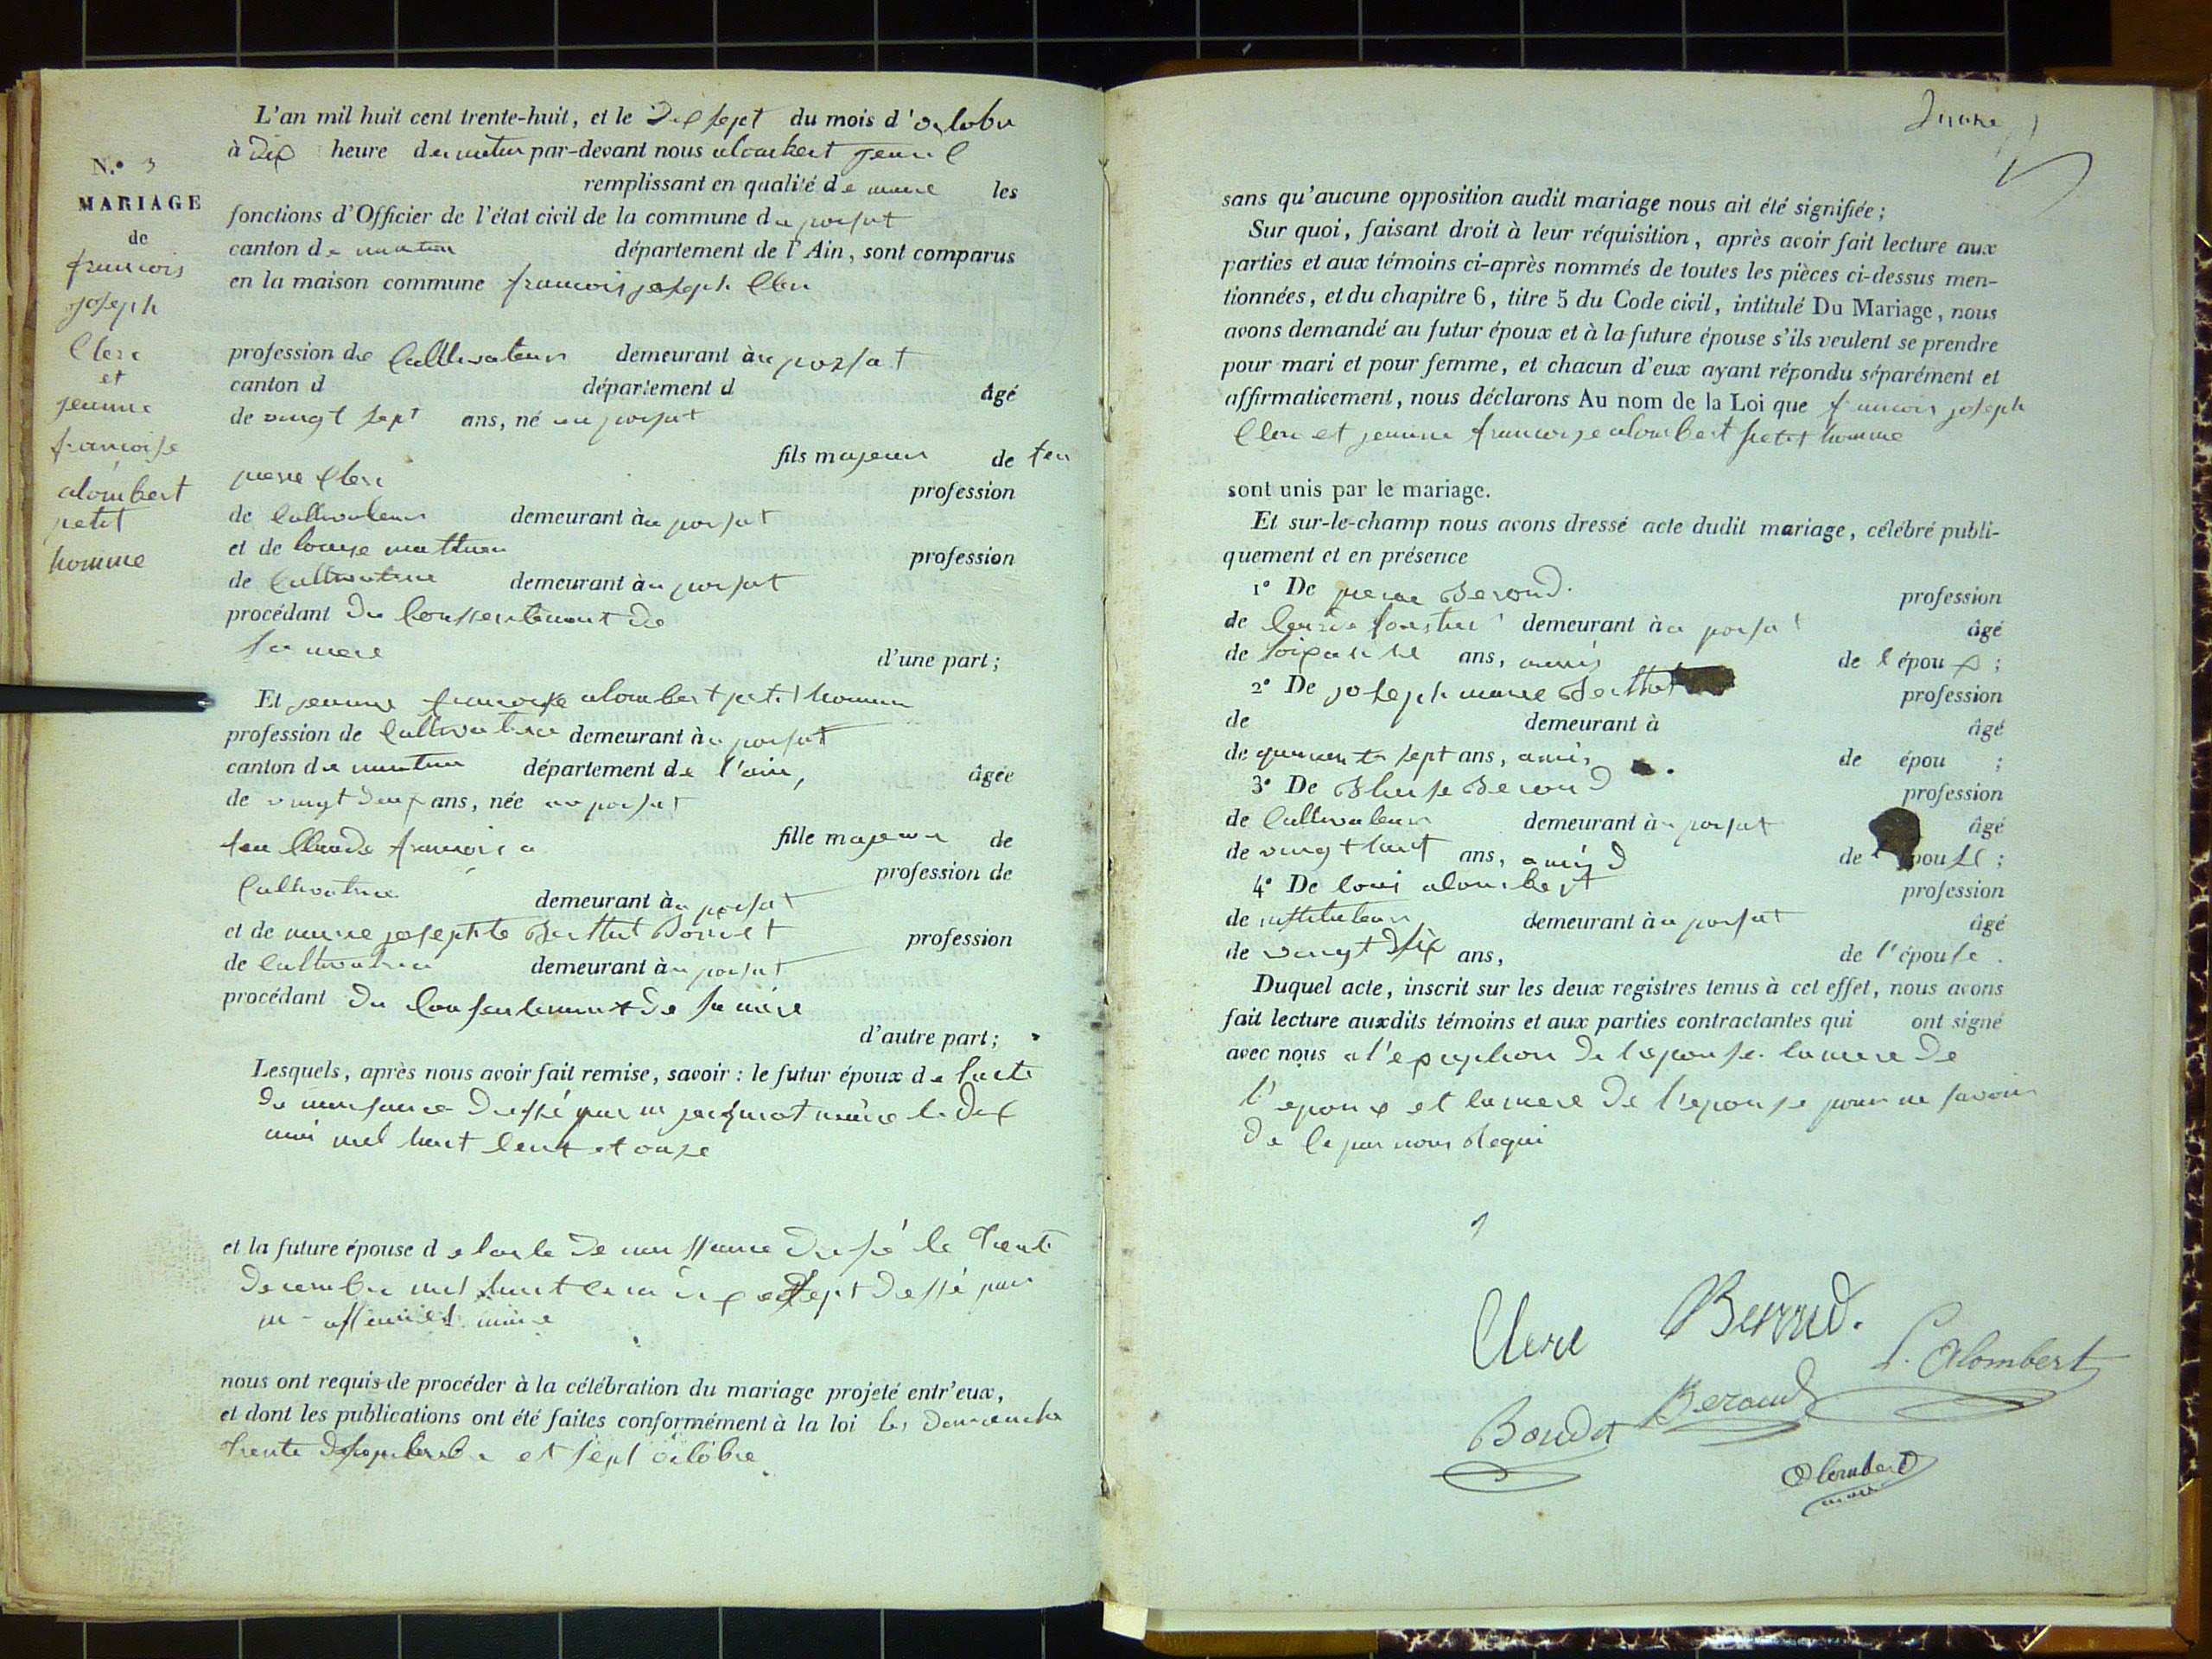 N.° 3
MARIAGE
de
francois
joseph
Clerc
et
jeanne
francoise
alombert
petit
homme
L'an mil huit cent trente-huit, et le dix sept du mois d'octobre
à dix heure du matin par-devant nous alombert
remplissant en qualité de maire les
fonctions d'Officier de l'état civil de la commune du poisat
canton de nantua département de l'Ain, sont comparus
en la maison commune francois joseph Clerc
profession de Cultivateur demeurant au poisat
canton d département d âgé
de vingt sept ans, né au poisat
fils majeur de feu
pierre Clerc profession
de Cultivateur demeurant au poisat
et de louise mathieu profession
de Cultivatrice demeurant au poisat
procédant du Conssentement de
sa mere d'une part;
Et jeanne francoise alombert petit homme
profession de Cultivatrice demeurant au poisat
canton de nantua département de l'ain, âgée
de vingt deux ans, née au poisat
fille majeure de
feu Claude francois a profession de
Cultivatrice demeurant au poisat
et de marie josephte Berthet Bondet profession
de Cultivatrice demeurant au poisat
procédant du Consentement de sa mère
d'autre part;
Lesquels, après nous avoir fait remise, savoir: le futur époux de lacte
de naissance dressé par m maire le dix
mai mil huit cent et onze
et la future épouse de lacte de naissance dressé le trente
decembre mil huit cent sept dressé par
m maire
nous ont requis de procéder à la célébration du mariage projeté entr'eux,
et dont les publications ont été faites conformément à la loi les dimanche
trente septembre et sept octobre
sans qu'aucune opposition audit mariage nous ait été signifiée;
Sur quoi, faisant droit à leur réquisition, après avoir fait lecture aux
parties et aux témoins ci-après nommés de toutes les pièces ci-dessus men-
tionnées, et du chapitre 6, titre 5 du Code civil, intitulé Du Mariage, nous
avons demandé au futur époux et à la future épouse s'ils veulent se prendre
pour mari et pour femme, et chacun d'eux ayant répondu séparément et
affirmativement, nous déclarons Au nom de la Loi que francois joseph
Clerc et jeanne francoise alombert petit homme
sont unis par le mariage.
Et sur-le-champ nous avons dressé acte dudit mariage, célébré publi-
quement et en présence
1° De pierre Beroud profession
de garde forestier demeurant au poisat âgé
de soixante ans, amis de l époux;
2° De joseph marie Berthet profession
de demeurant à âgé
de quarente sept ans, amis de épou ;
3° De Blaise Beroud profession
de Cultivateur demeurant au poisat âgé
de vingt huit ans, amis d de épouse;
4° De loui alombert profession
de instituteur demeurant au poisat âgé
de vingt six ans, de l'épouse.
Duquel acte, inscrit sur les deux registres tenus à cet effet, nous avons
fait lecture auxdits témoins et aux parties contractantes qui ont signé
avec nous a l'exception de l'epouse. la mere de
l'epoux et la mere de l'epouse pour ne savoir
de ce par nous Requi
Clerc Beroud.
L. Alombert
Bondet Beroud
Alombert
maire